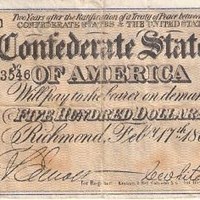 Two Years after the Ratification of a Treaty of Peace between
CONFEDERATE STATES & THE UNITED STA
Confederate State
3546 OF AMERICA
Will pay to the bearer on deman
FIVE HUNDRED DOLLAR
Richmond, Feb 17th 18
For Register